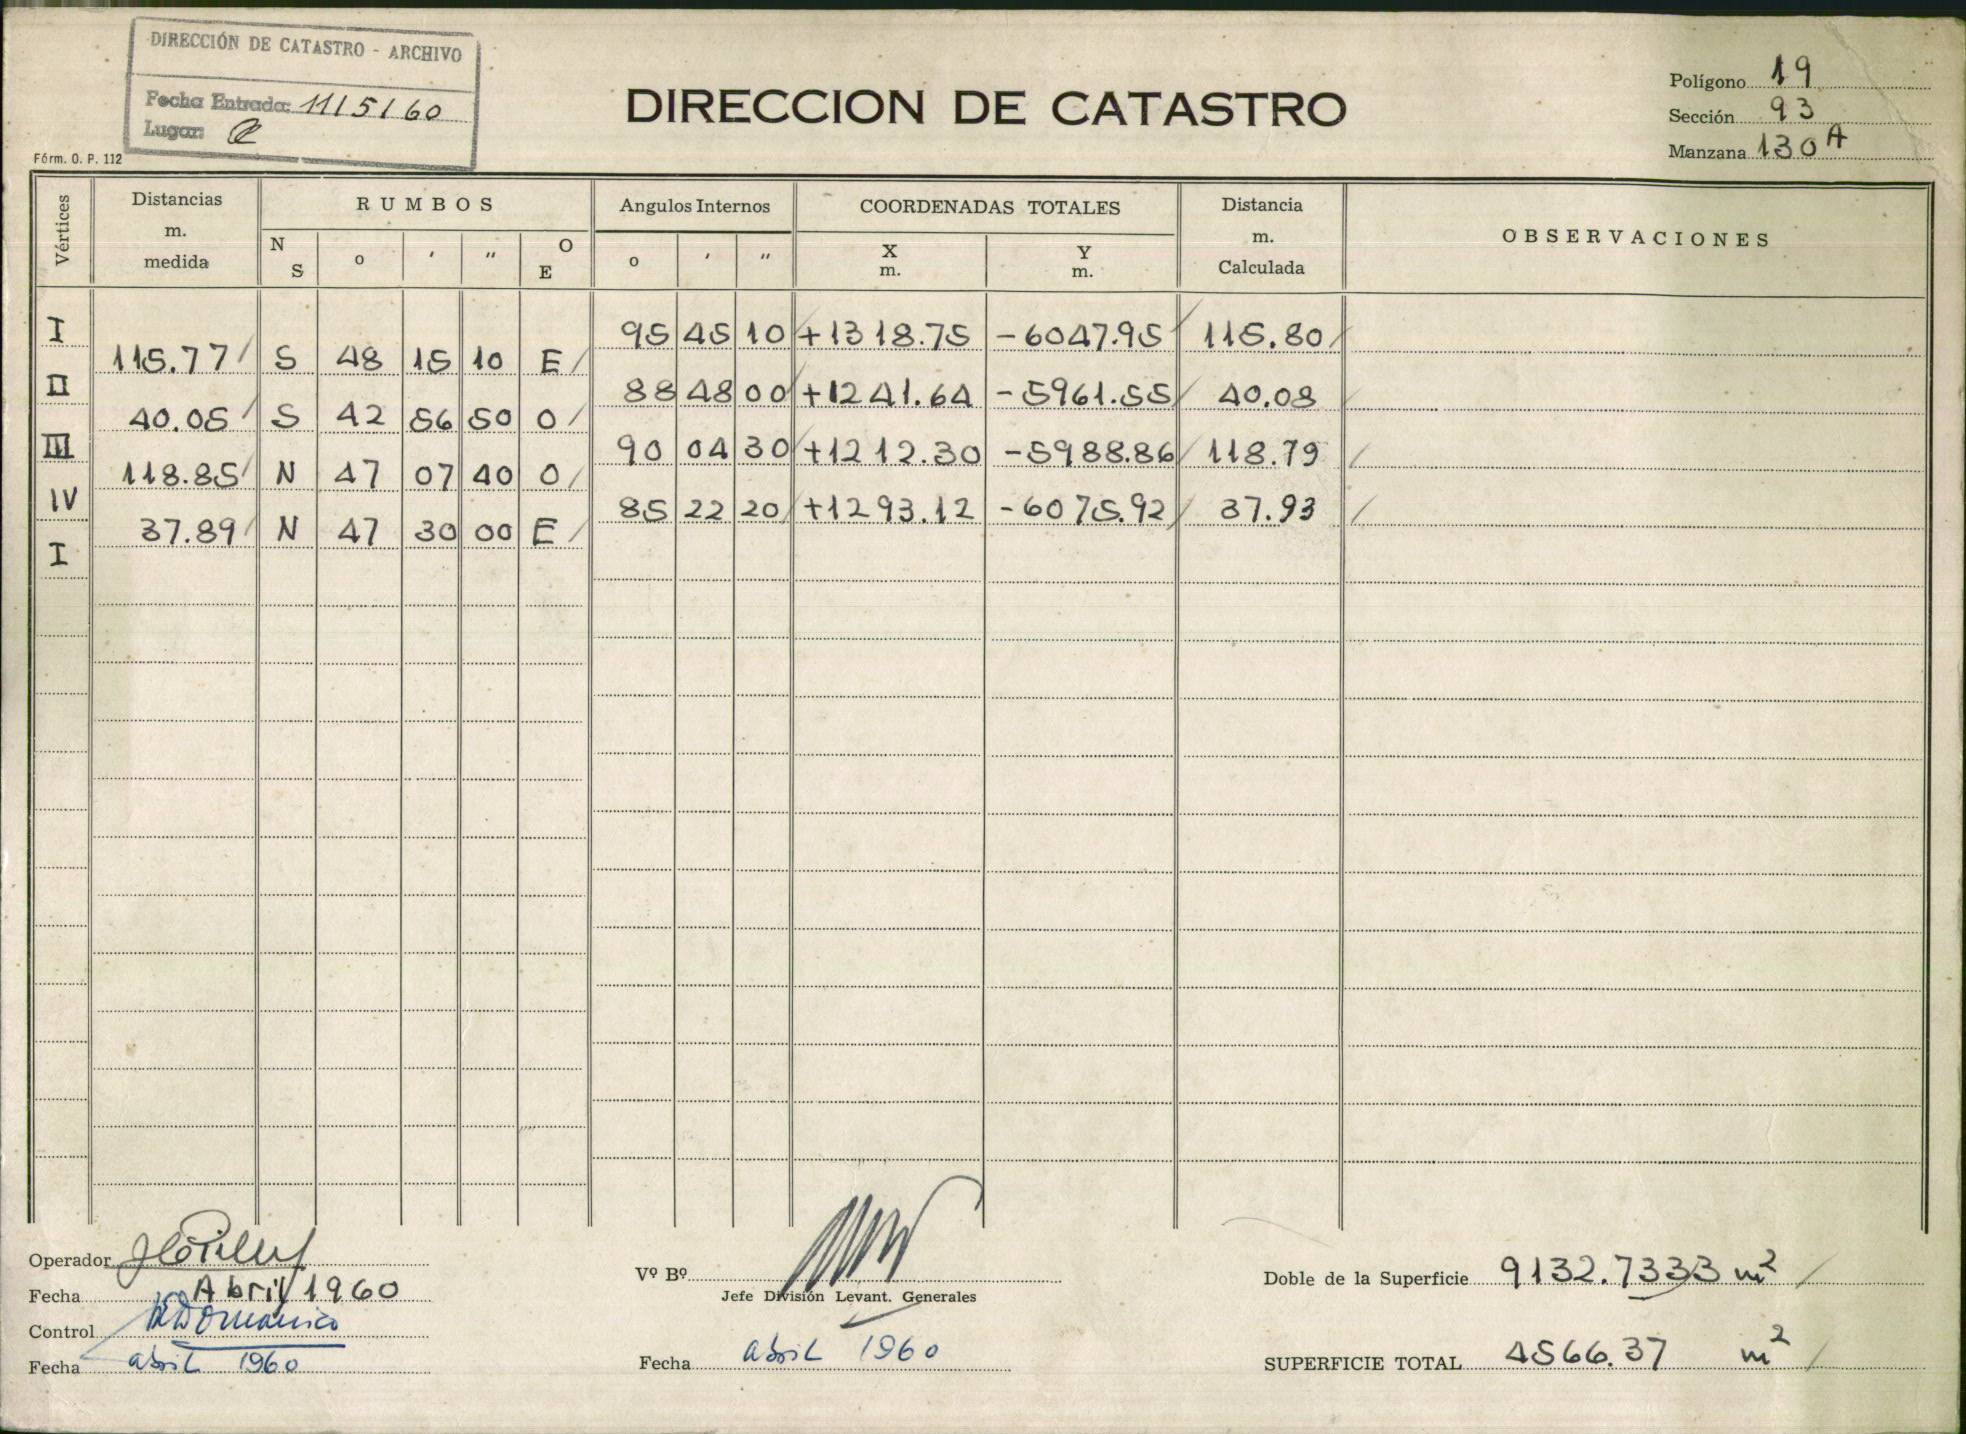 DIRECCIÓN DE CATASTRO - ARCHIVO
Fecha Entrada: 11/5/60
Lugar:
Fórm. O. P. 112
DIRECCION DE CATASTRO
Polígono 19
Sección 93
Manzana 130 A
Vértices
Distancias m. medida
RUMBOS
N S
o ′ ″
O E
Angulos Internos
o ′ ″
COORDENADAS TOTALES
X m.
Y m.
Distancia m. Calculada
OBSERVACIONES
I 95 45 10 +1318.75 -6047.95 115.80
115.77 S 48 15 10 E
II 88 48 00 +1241.64 -5961.55 40.08
40.05 S 42 56 50 O
III 90 04 30 +1212.30 -5988.86 118.79
118.85 N 47 07 40 O
IV 85 22 20 +1293.12 -6075.92 37.93
37.89 N 47 30 00 E
I
Operador
Fecha Abril 1960
Control
Fecha abril 1960
Vº Bº
Jefe División Levant. Generales
Fecha abril 1960
Doble de la Superficie 9132.7333 m²
SUPERFICIE TOTAL 4566.37 m²